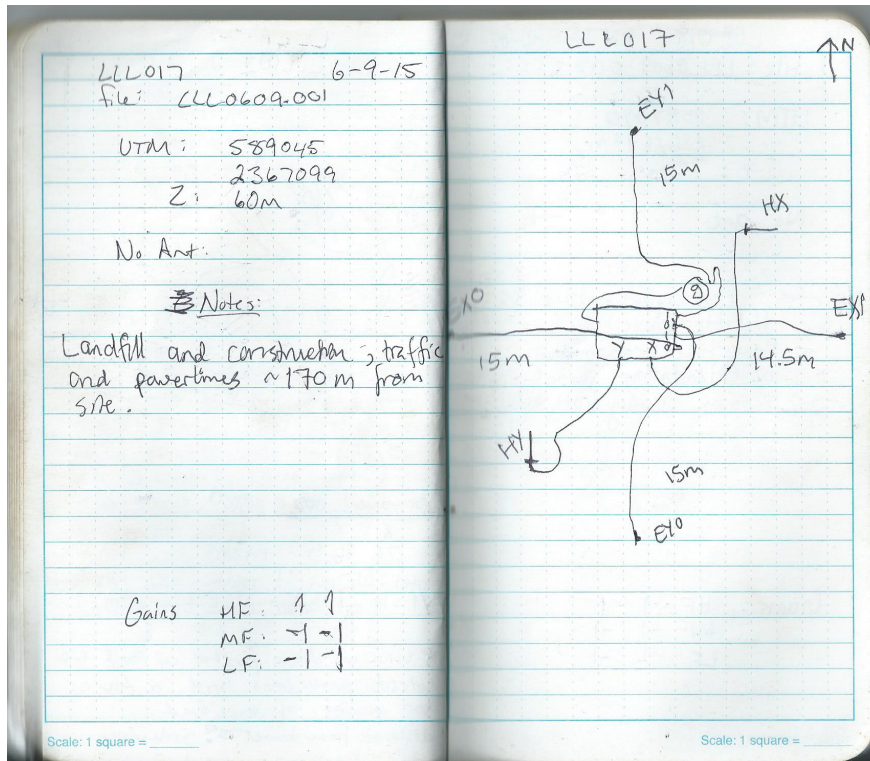 LLL017 6-9-15
file: LLL0609.001
UTM: 589045
2367099
Z: 60m
No Ant.
Notes:
Landfill and construction, traffic
and powerlines ~170 m from
site.
Gains HF: 1 1
MF: -1 -1
LF: -1 -1
Scale: 1 square =
LLL017
N
EY1
15m
HX
g
EX0
EX1
15m
Y X
14.5m
HY
15m
EY0
Scale: 1 square =